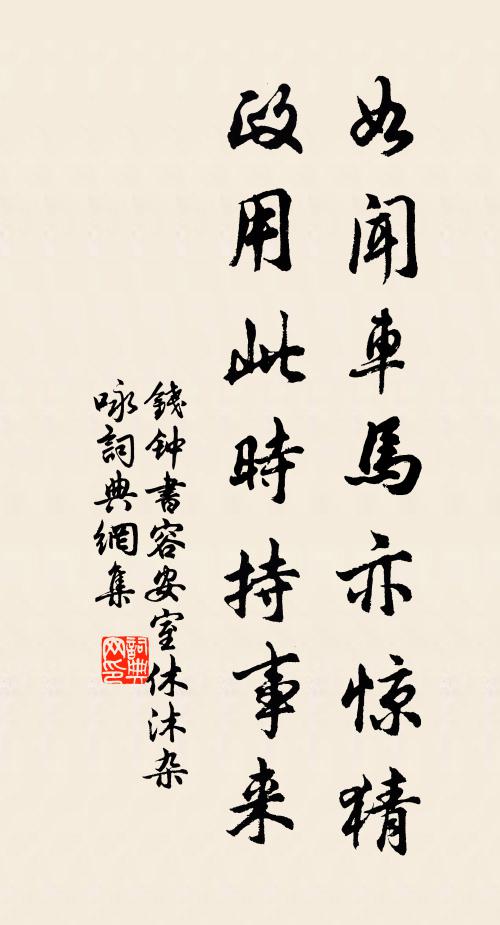 如闻車馬亦惊猜
政用此時持事来
錢钟書容安室休沐杂
咏詞典網集
詞典網印